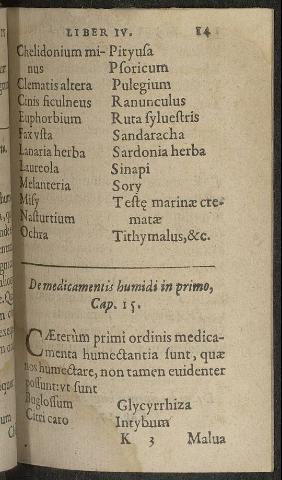 LIBER IV. 14
Chelidonium mi- Pityusa
nus Psoricum
Clematis altera Pulegium
Cinis ficulneus Ranunculus
Euphorbium Ruta syluestris
Fax vsta Sandaracha
Lanaria herba Sardonia herba
Laureola Sinapi
Melanteria Sory
Misy Testę marinæ cre-
Nasturtium matæ
Ochra Tithymalus, &c.
De medicamentis humidi in primo,
Cap. 15.
CÆterùm primi ordinis medica-
menta humectantia sunt, quæ
nos humectare, non tamen euidenter
possunt: vt sunt
Buglossum Glycyrrhiza
Citri caro Intybum
K 3 Malua